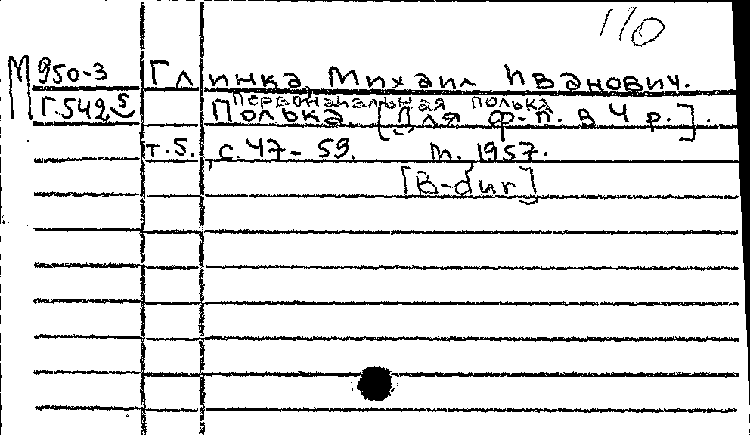 110
М 950-3 Глинка, Михаил Иванович.
Первоначальная полька
Г.542 5 Полька. [Для ф-п. в 4 р.].
т.5. с.47-59. М., 1957.
[B-dur]